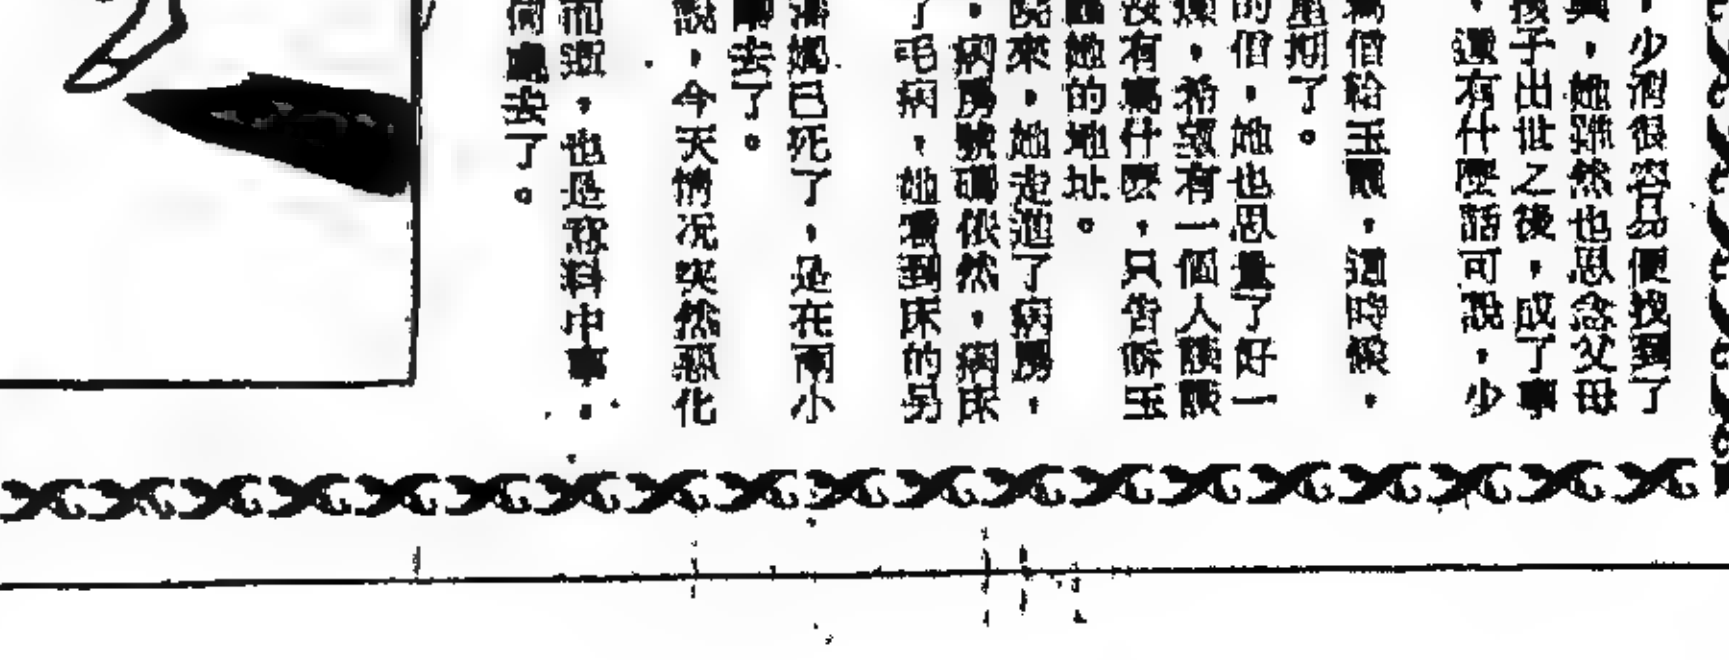 ，少消很容易便找到了
，她雖然也思念父母
孩子出世之後，成了事
，還有什麼話可說，少
寫信給玉
，這時候，
星期了。
的信，她也思量了好一
，希望有一個人談談
沒有寫什麼，只告訴玉
她的地址。
院來，她走進了病房，
，病房號碼依然，病床
了毛病，她看到床的另
媽已死了，是在兩小
去了。
說，今天情況突然惡化
而逝，也是意料中事，
何處去了。